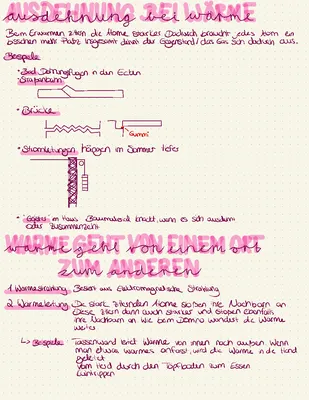 AUSDEHNUNG BEI WÄRME
ausdehnung bei wärme
Beim Erwärmen zittern die Atome stärker. Dadurch braucht jedes Atom ein
bisschen mehr Platz. Insgesamt dehnt der Gegenstand / das Gas sich dadurch aus.
Beispiele
• Bad: Dehnungsfugen in den Ecken
• Straßenbahn
• Brücke
Gummi
• Stromleitungen hängen im Sommer tiefer
• im Haus Baumaterial knackt, wenn es sich ausdehnt
oder zusammenzieht
WÄRME GEHT VON EINEM ORT
wärme geht von einem ort
ZUM ANDEREN
zum anderen
1. Wärmestrahlung: Besteht aus Elektromagnetische Strahlung
2. Wärmeleitung: Die stark zitternden Atome stoßen ihre Nachbarn an
Diese zittern dann auch stärker und stoßen ebenfalls
ihre Nachbarn an. Wie beim Domino wandert die Wärme
weiter
↳ Beispiele: Tassenwand leitet Wärme von innen nach außen. Wenn
man etwas Warmes anfasst, wird die Wärme in die Hand
geleitet
Vom Herd durch den Topfboden zum Essen